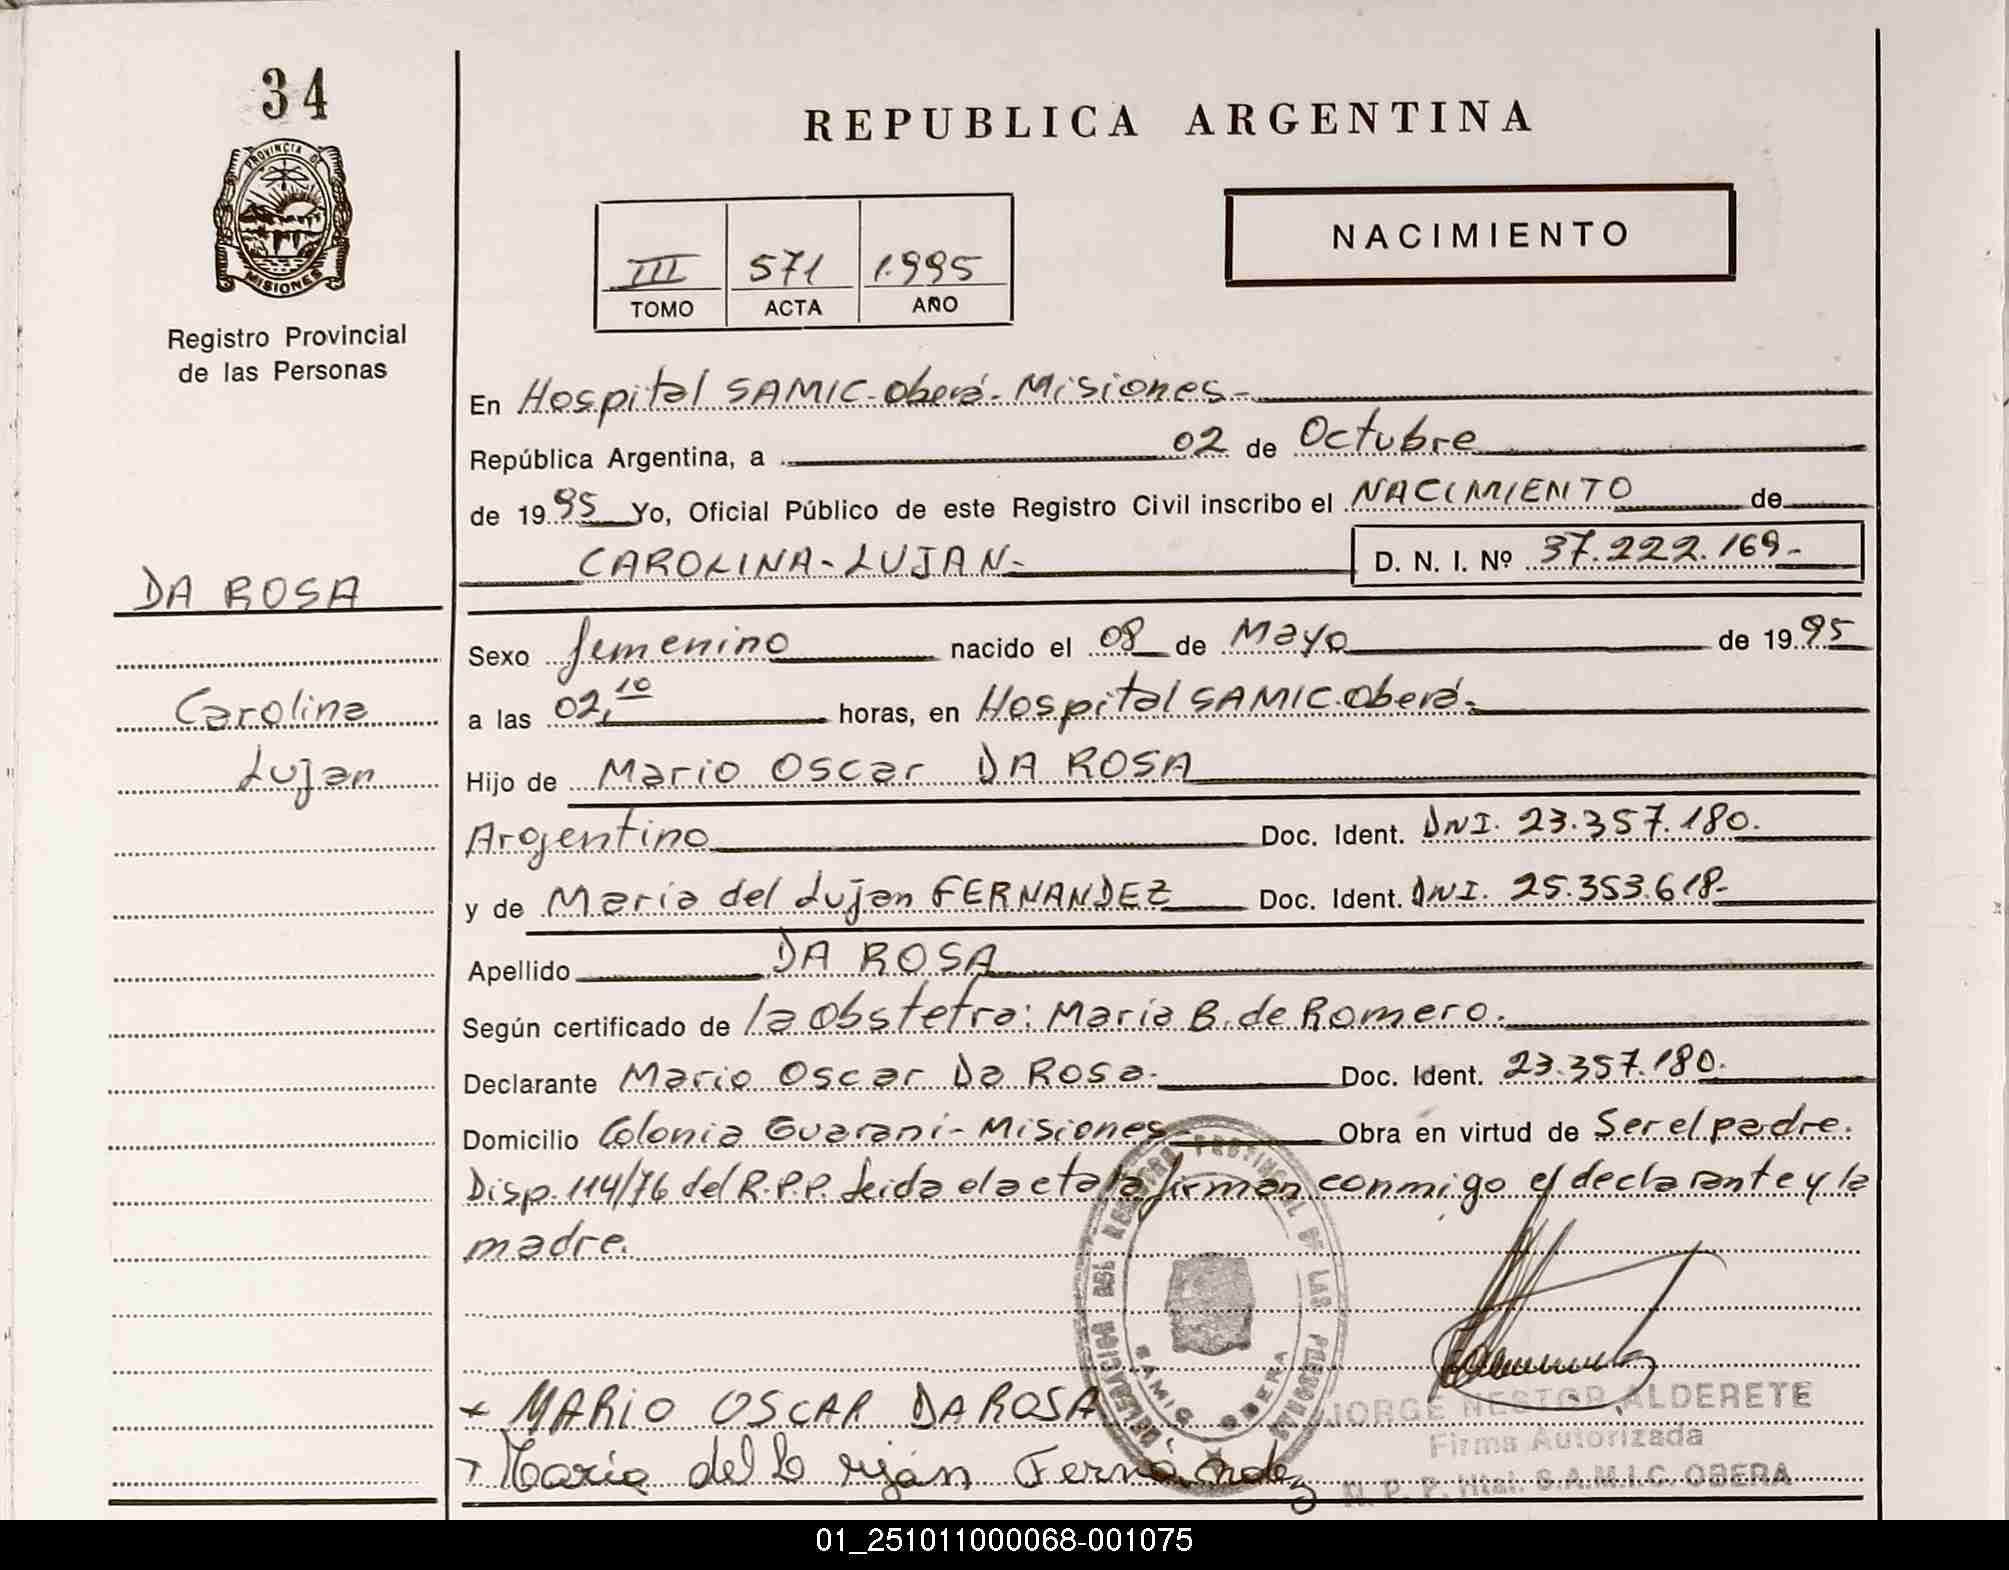 34
PROVINCIA DE
MISIONES
Registro Provincial
de las Personas
DA ROSA
Carolina
Lujan
REPUBLICA ARGENTINA
III 571 1.995
TOMO ACTA AÑO
NACIMIENTO
En Hospital SAMIC-Oberá-Misiones-
República Argentina, a 02 de Octubre
de 1995 Yo, Oficial Público de este Registro Civil inscribo el NACIMIENTO de
CAROLINA-LUJAN- D. N. I. Nº 37.222.169-
Sexo femenino nacido el 08 de Mayo de 1995
a las 02,10 horas, en Hospital SAMIC.Oberá-
Hijo de Mario Oscar DA ROSA
Argentino Doc. Ident. DNI. 23.357.180.
y de María del Lujan FERNANDEZ Doc. Ident. DNI. 25.353.618-
Apellido DA ROSA
Según certificado de la Obstetra: María B. de Romero.
Declarante Mario Oscar Da Rosa- Doc. Ident. 23.357.180.
Domicilio Colonia Guaraní-Misiones Obra en virtud de Ser el padre.
Disp. 114/76 del R.P.P. Leida el acta la firman conmigo el declarante y la
madre.
DELEGACION DEL REGISTRO PROVINCIAL DE LAS PERSONAS
SAMIC OBERA
MARIO OSCAR DA ROSA
María del Lujan Fernandez
JORGE NESTOR ALDERETE
Firma Autorizada
R. P. P. Htal. S.A.M.I.C. OBERA
01_251011000068-001075